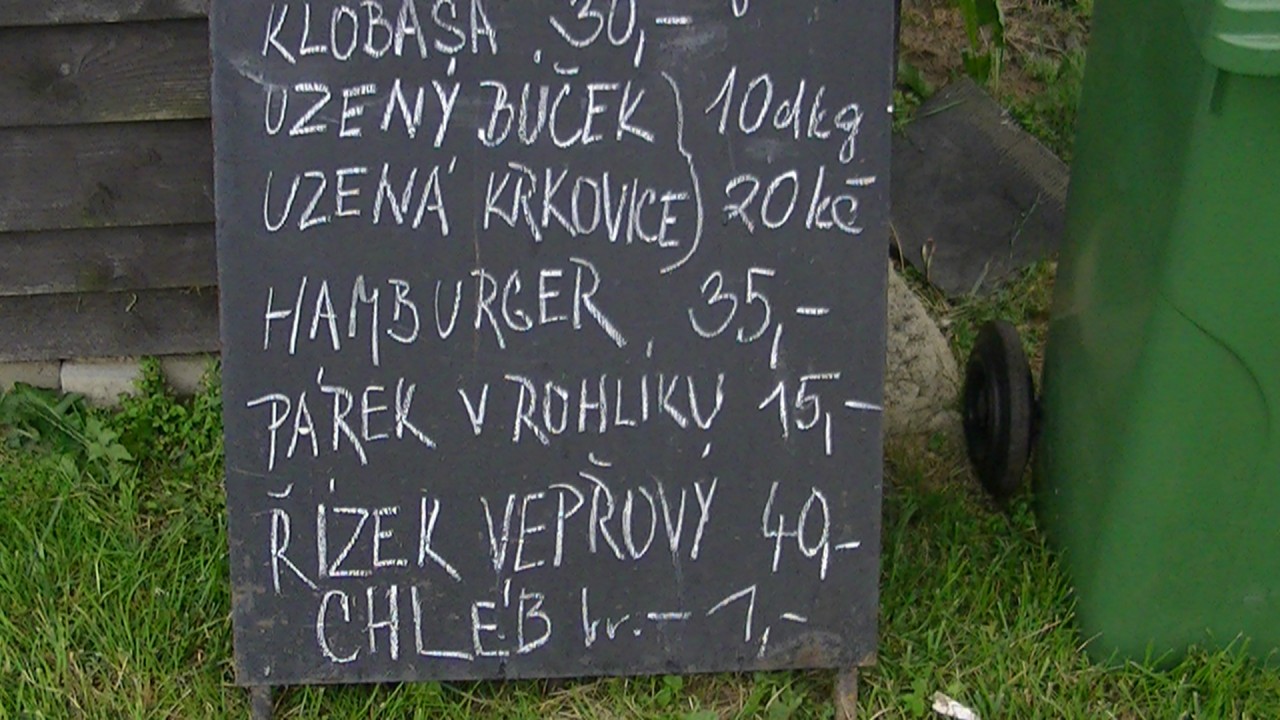 KLOBÁSA 30,-
UZENÝ BŮČEK 10dkg
UZENÁ KRKOVICE 20kč
HAMBURGER 35,-
PÁREK V ROHLÍKU 15,-
ŘÍZEK VEPŘOVÝ 40,-
CHLÉB kr.- 1,-